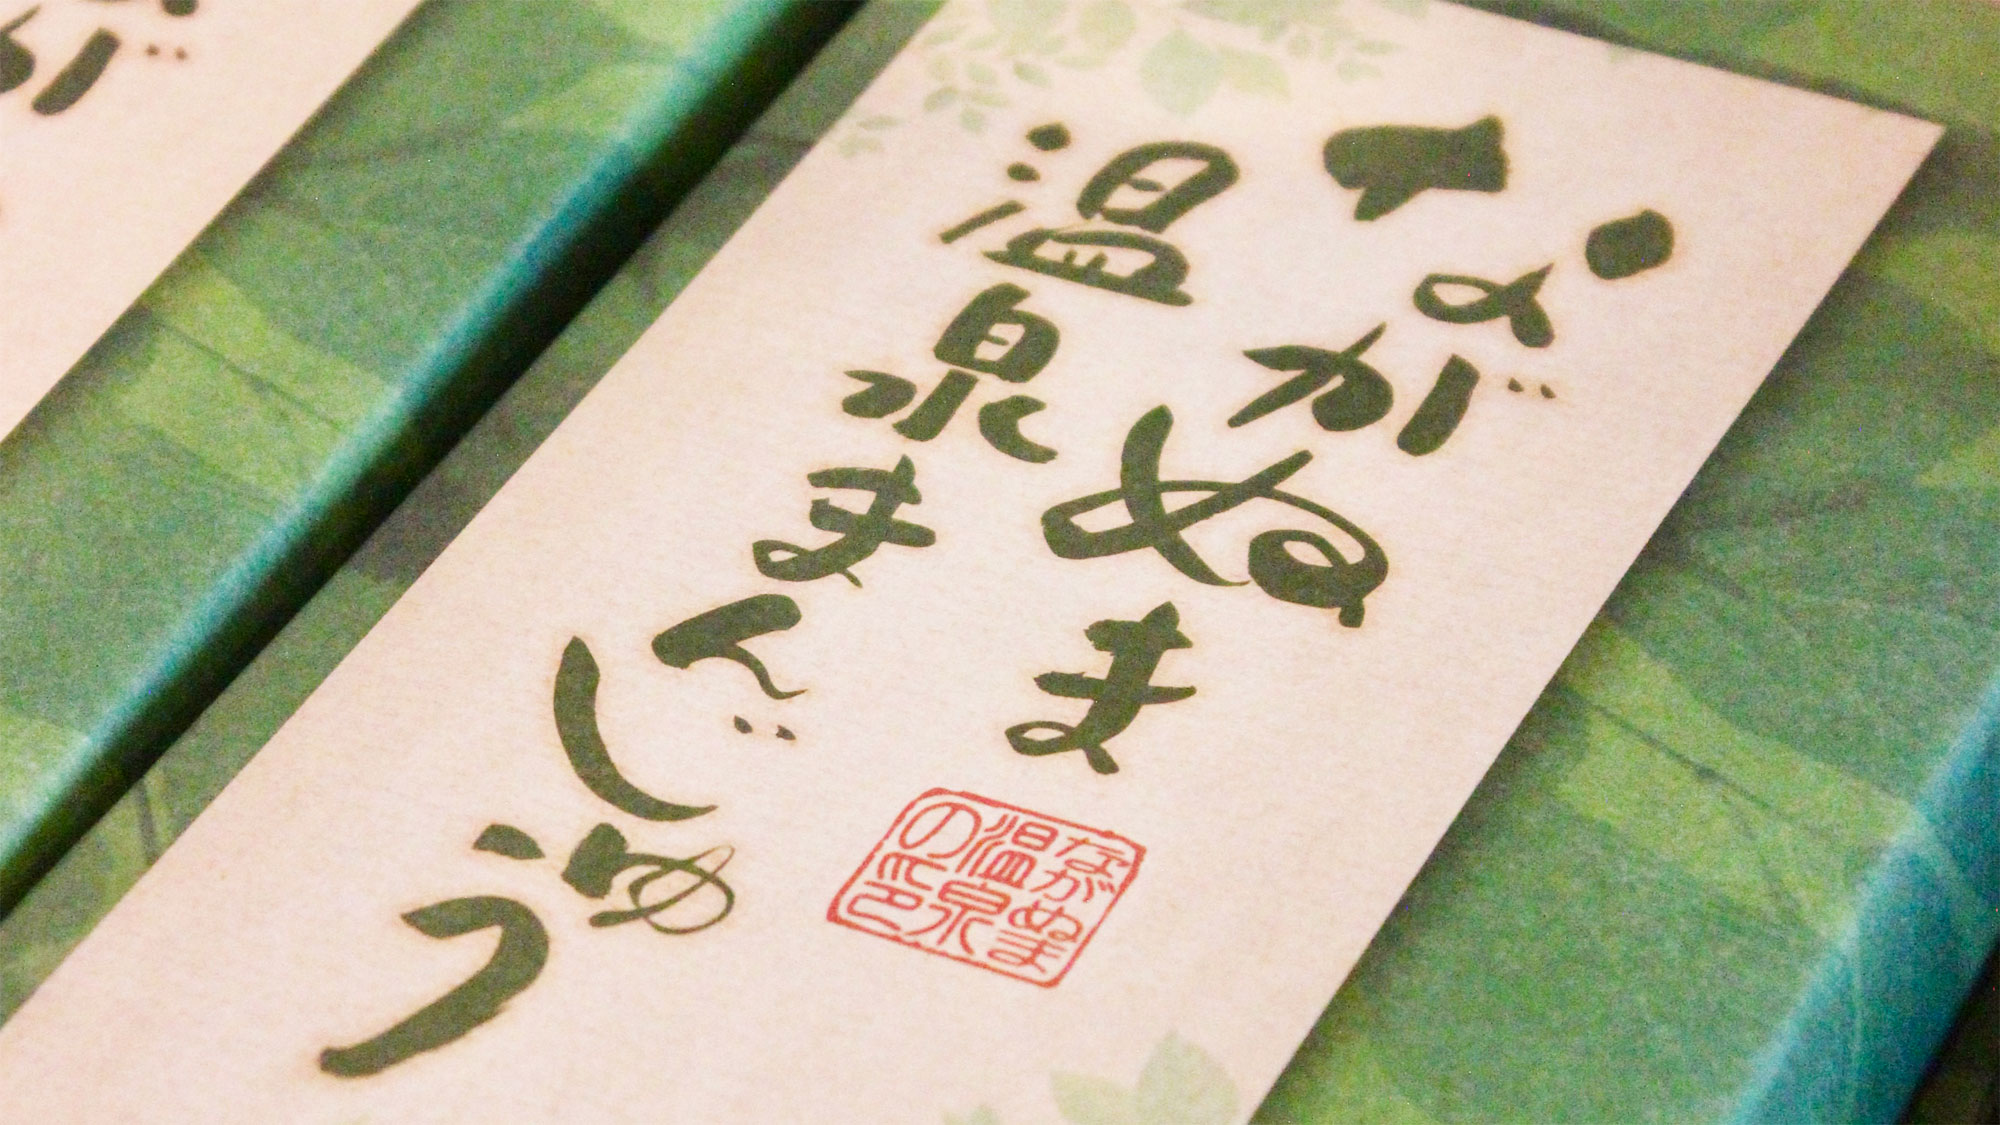 ながぬま
温泉まんじゅう
ながぬま
温泉
の印
が